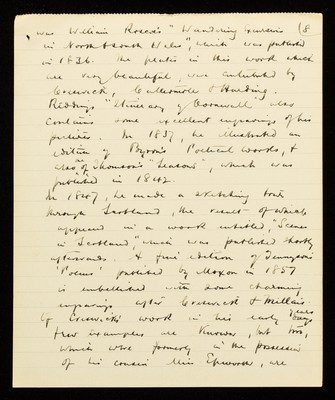 was William Roscoe's "Wandering (8
in North & South Wales", which was published
in 1836. The plates in this work which
are very beautiful, was contributed by
Creswick, Cattermole & Harding.
Redding's "Itinerary of Cornwall" also
contains some excellent engravings of his
pictures. In 1837, he illustrated an
edition of Byron's Poetical works, &
also of Thomson's "Seasons", which was
published in 1842.
In 1847, he made a sketching tour
through Scotland, the result of which
appeared in a work entitled, "Scenes
in Scotland", which was published shortly
afterwards. A fine edition of Tennyson's
'Poems' published by Moxon in 1857
is embellished with some charming
engravings after Creswick & Millais.
Of Creswick's work in his early years
few examples are known, but two,
which were formerly in the possession
of his cousin Miss Epworth, are